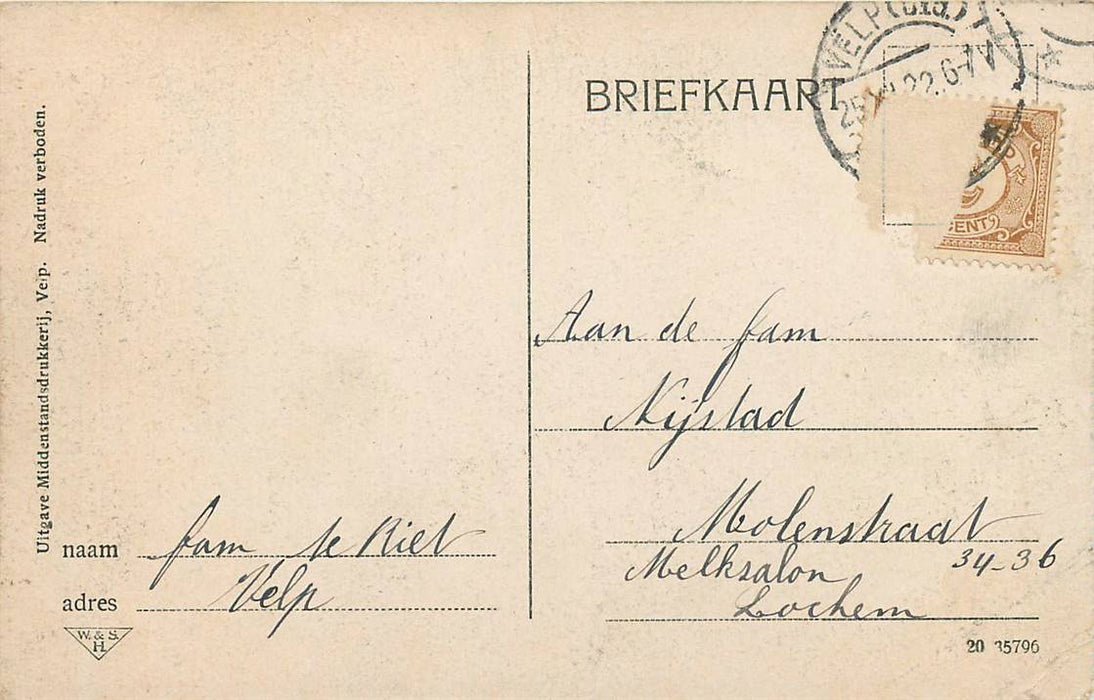 VELP (Gld.)
22.6-7V
BRIEFKAART
CENT
Uitgave Middenstandsdrukkerij, Velp. Nadruk verboden.
Aan de fam
Nijstad
Molenstraat
34-36
Melksalon
Lochem
naam fam te Riet
adres Velp
W. & S.
H.
20 35796